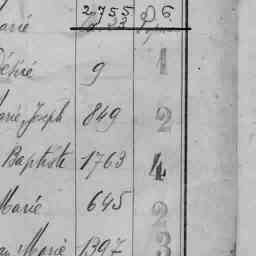 2755 D 6
arie
Désiré 9 1
arie Joseph 849 2
Baptiste 1763 4
Marie 645 2
Marie 1397 3